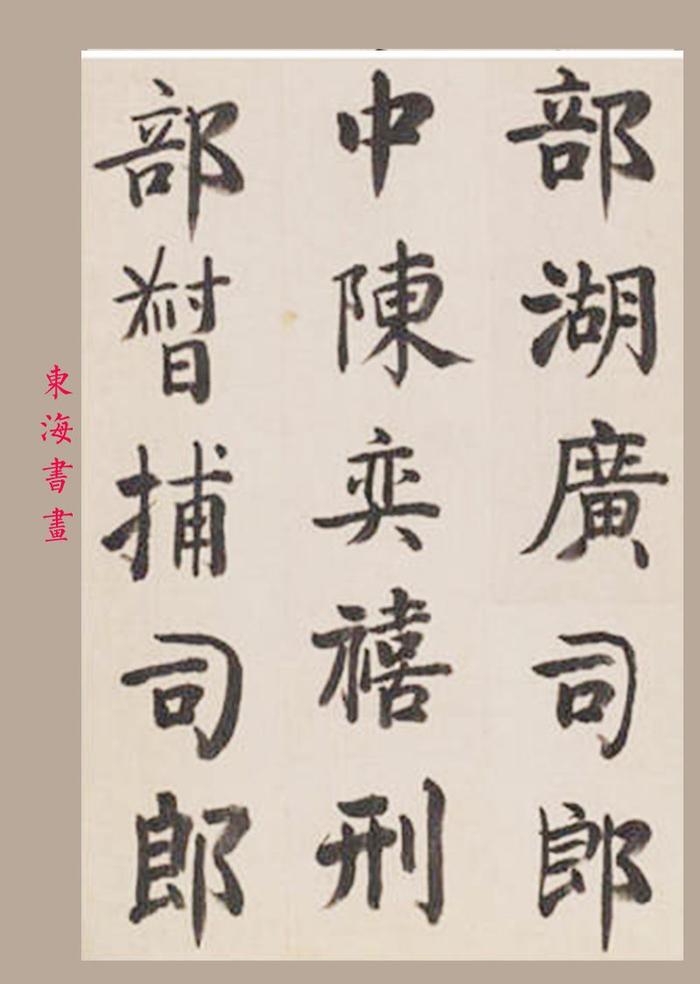 部湖廣司郎
中陳奕禧刑
部督捕司郎
東海書畫